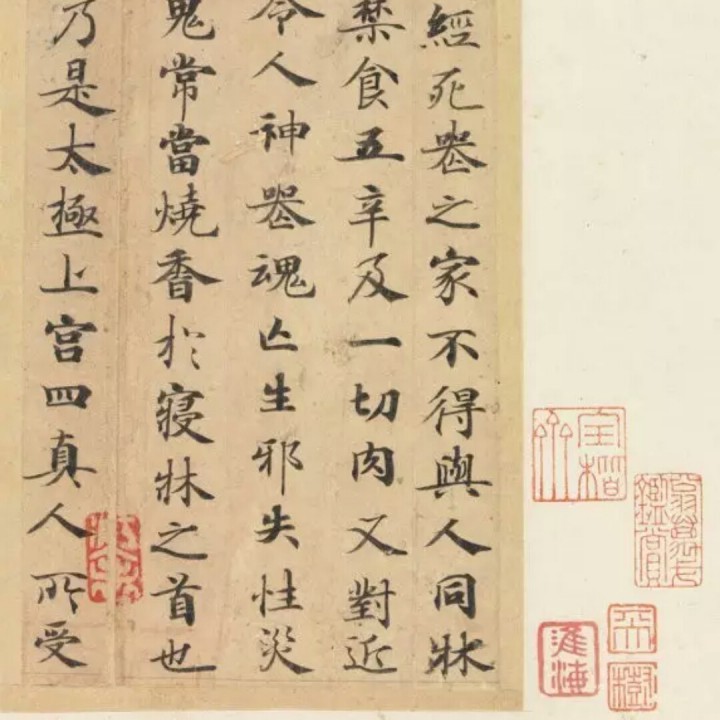 經死喪之家不得與人同牀
禁食五辛及一切肉又對近
令人神喪魂亾生邪失性災
鬼常當燒香於寢牀之首也
乃是太極上宮四真人所受
翁萬戈
鑑賞